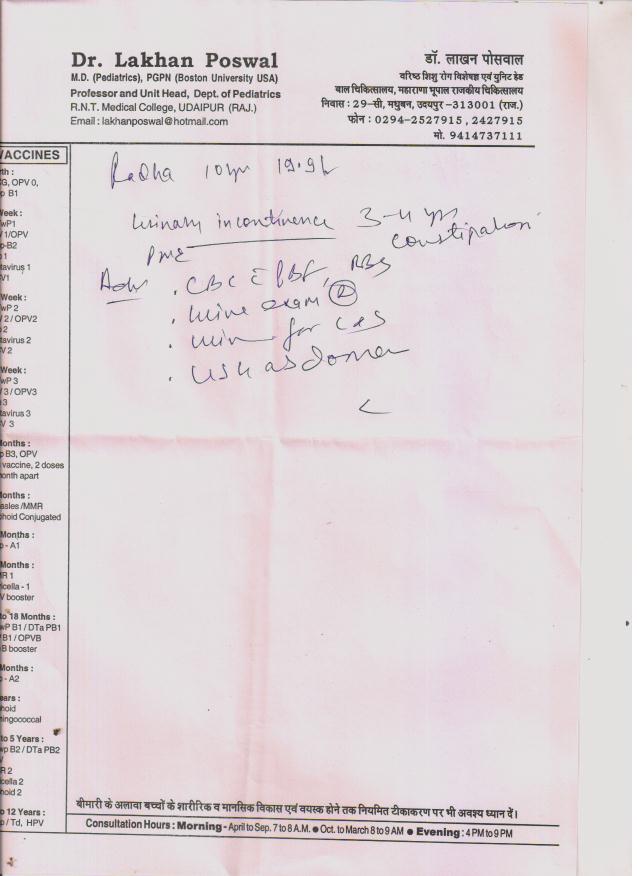 Dr. Lakhan Poswal
M.D. (Pediatrics), PGPN (Boston University USA)
Professor and Unit Head, Dept. of Pediatrics
R.N.T. Medical College, UDAIPUR (RAJ.)
Email : lakhanposwal@hotmail.com
डॉ. लाखन पोसवाल
वरिष्ठ शिशु रोग विशेषज्ञ एवं यूनिट हेड
बाल चिकित्सालय, महाराणा भूपाल राजकीय चिकित्सालय
निवास : 29-सी, मधुबन, उदयपुर -313001 (राज.)
फोन : 0294-2527915 , 2427915
मो. 9414737111
VACCINES
th :
G, OPV 0,
p B1
Week :
wP1
1/OPV
p-B2
1
tavirus 1
V1
Week :
wP 2
2 / OPV2
2
tavirus 2
V 2
Week :
wP 3
/ 3 / OPV3
3
tavirus 3
V 3
onths :
p B3, OPV
vaccine, 2 doses
onth apart
onths :
asles /MMR
hoid Conjugated
Months :
p - A1
Months :
R 1
icella - 1
V booster
to 18 Months :
wP B1 / DTa PB1
B1 / OPVB
B booster
Months :
p - A2
ears :
hoid
ningococcal
to 5 Years :
wp B2 / DTa PB2
R 2
cella 2
hoid 2
o 12 Years :
p / Td, HPV
Radha 10 yr
Urinary incontinence 3-4 yrs
constipation
Adv . CBC PBF, RBS
. Urine exam R
. Urine for C&S
. USG abdomen
बीमारी के अलावा बच्चों के शारीरिक व मानसिक विकास एवं वयस्क होने तक नियमित टीकाकरण पर भी अवश्य ध्यान दें।
Consultation Hours : Morning - April to Sep. 7 to 8 A.M. ● Oct. to March 8 to 9 AM ● Evening : 4 PM to 9 PM